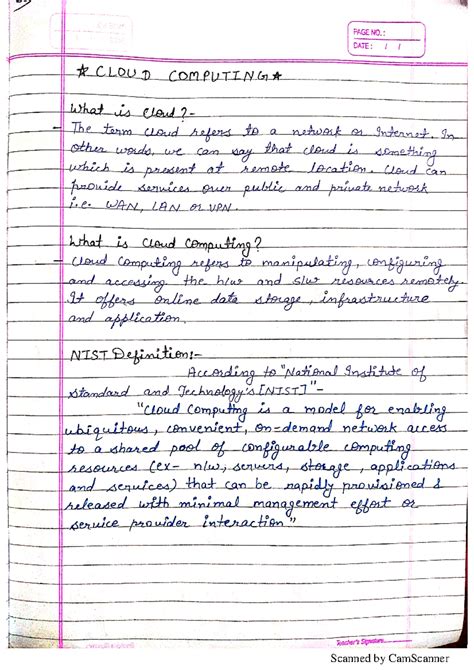 PAGE NO.:
DATE: / /
★ CLOUD COMPUTING ★
What is Cloud?-
- The term cloud refers to a network or Internet. In
other words, we can say that cloud is something
which is present at remote location. Cloud can
provide services over public and private network
i.e. WAN, LAN or VPN.
What is Cloud Computing?
- Cloud Computing refers to manipulating, configuring
and accessing the h/w and s/w resources remotely.
It offers online data storage, infrastructure
and application.
NIST Definition:-
According to "National Institute of
Standard and Technology's [NIST]"-
"Cloud Computing is a model for enabling
ubiquitous, convenient, on-demand network access
to a shared pool of configurable computing
resources (ex- n/w, servers, storage, applications
and services) that can be rapidly provisioned &
released with minimal management effort or
service provider interaction."
Teacher's Signature
Scanned by CamScanner